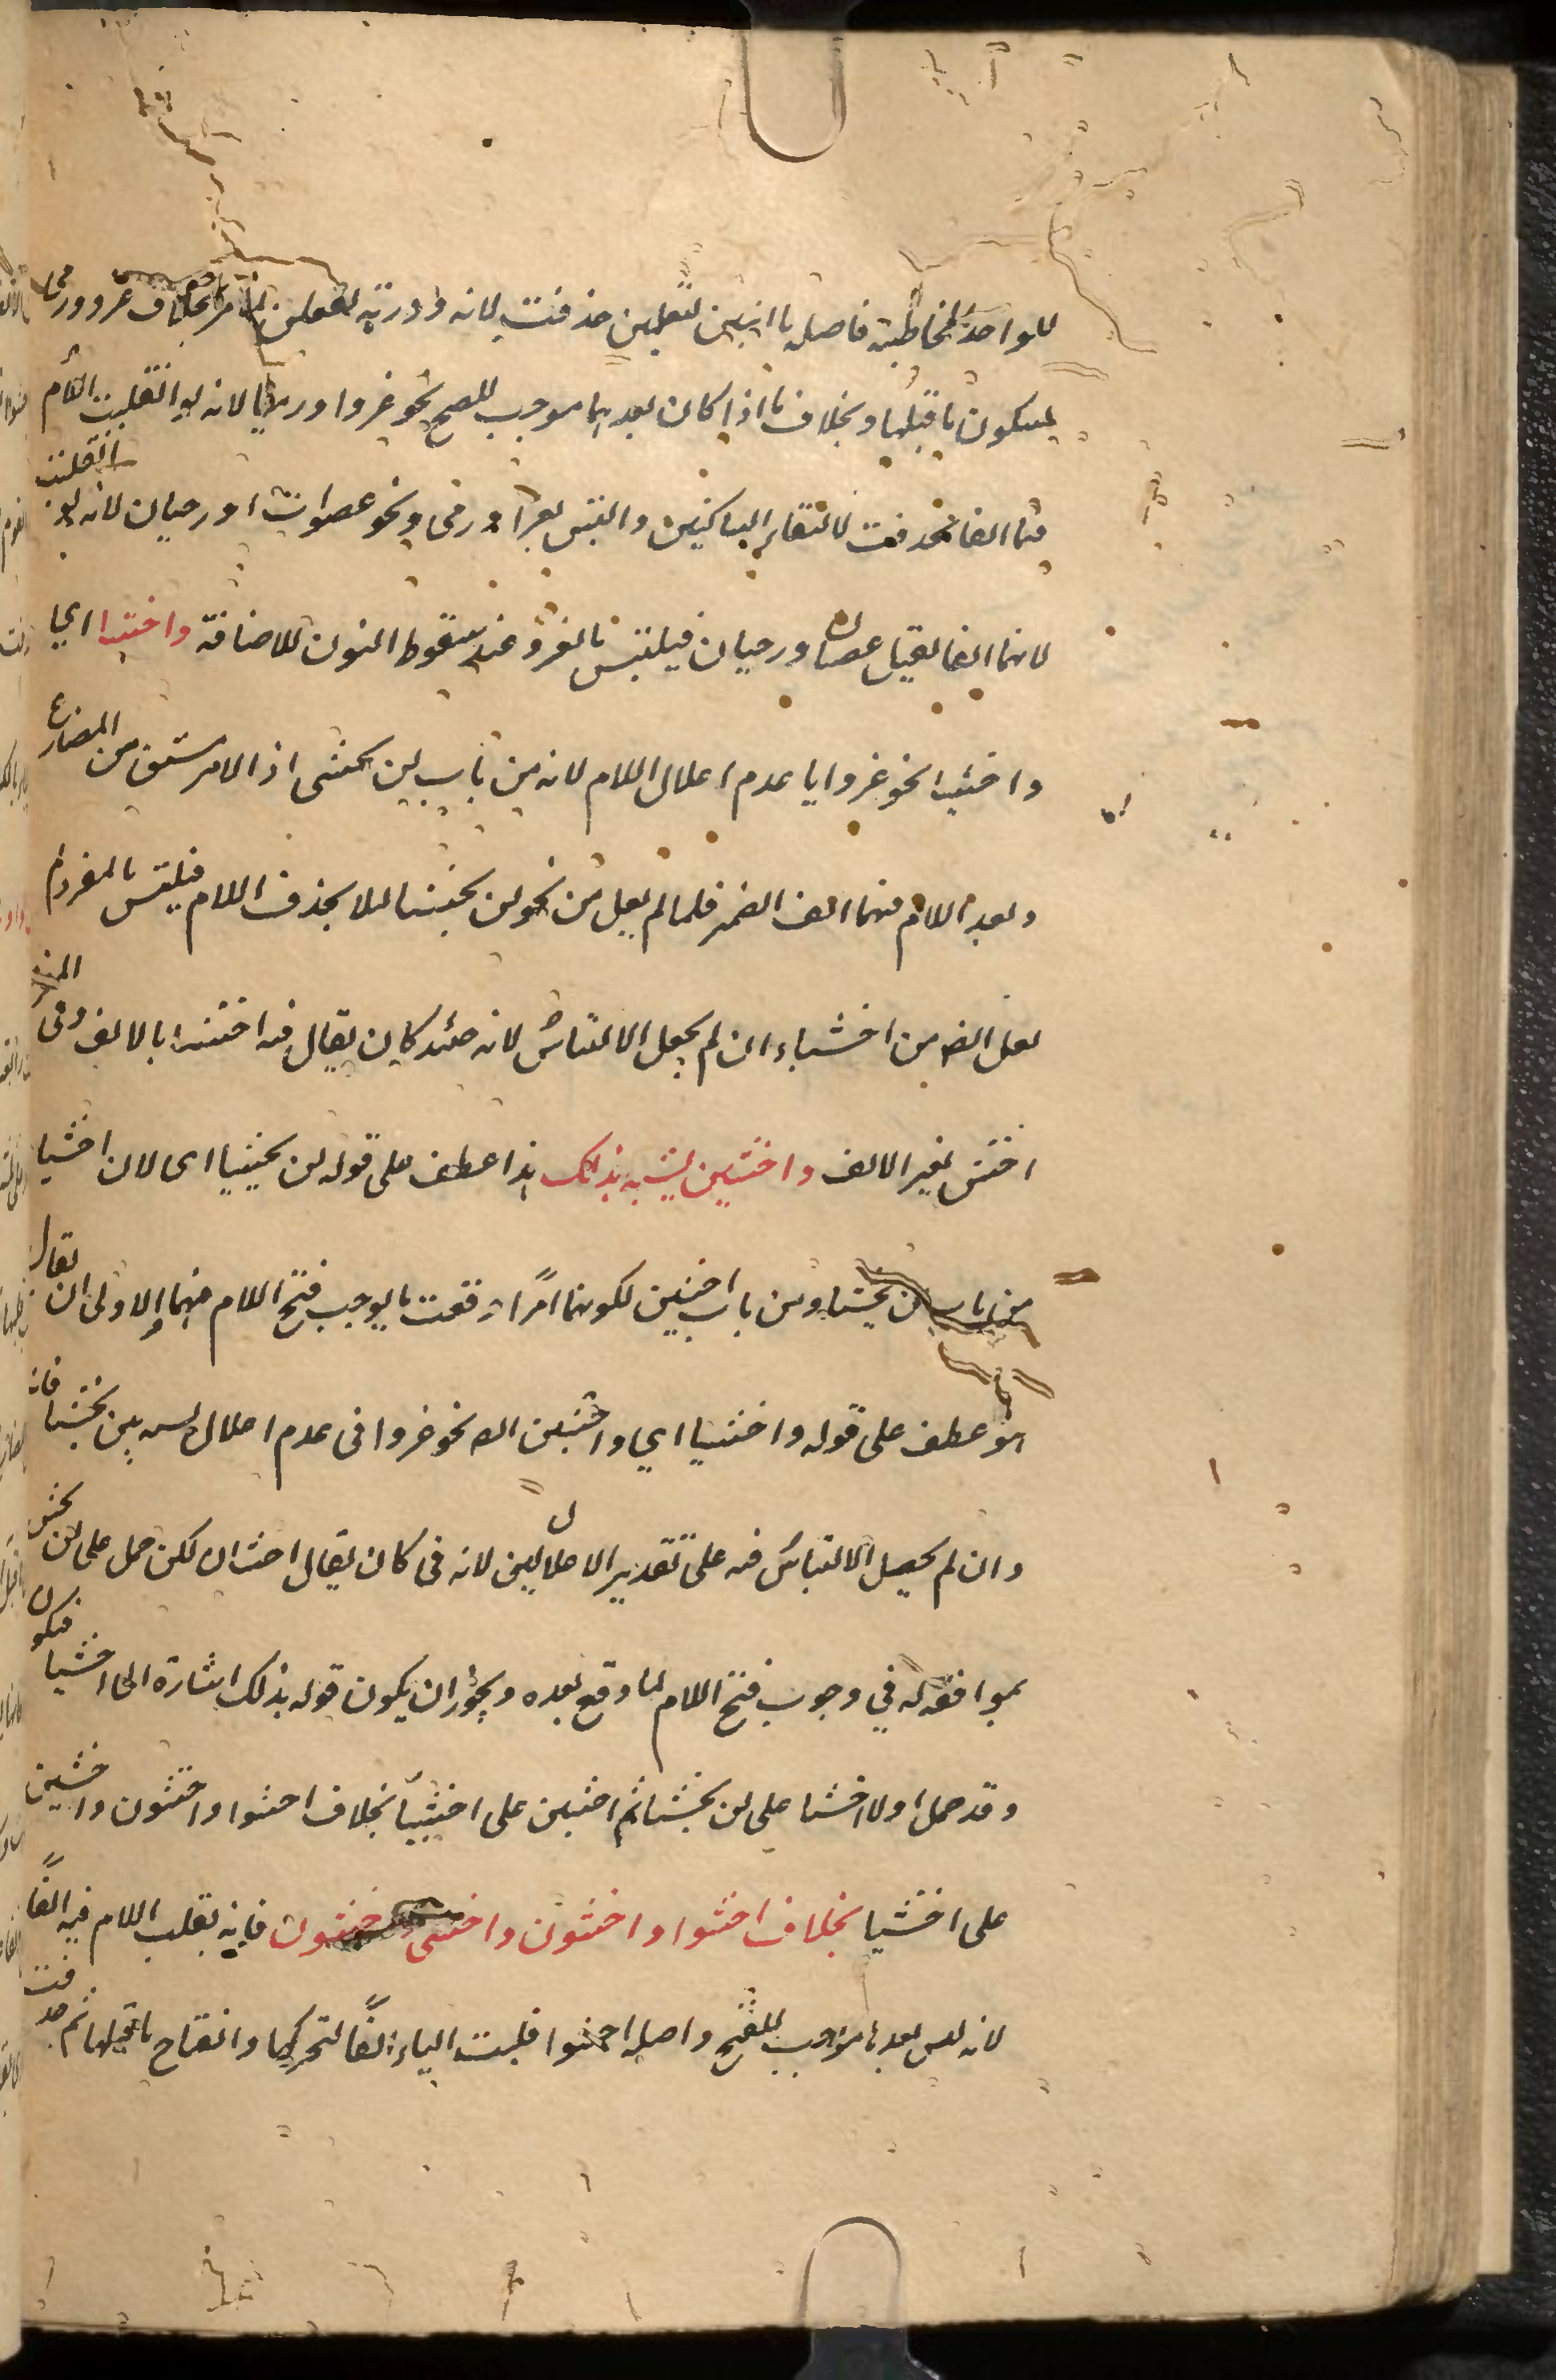 للواحدة المخاطبة فاصله تا انيين لتفعلين حذفت لانه وادرته لتفعلن لما مر بخلاف غزو ورمى
لسكون ما قبلها وبخلاف ما اذا كان بعدهما موجب للصح نحو غزوا ورميا لانه لو انقلبت اللام
منهما الفا لحذفت لالتقاء الساكنين والتبس بغزا ورمى ونحو عصوان او رحيان لانه لو انقلبت
لامهما الفا لقيل عصان ورحيان فيلتبس بالمفرد عند سقوط النون للاضافة واخشيا اي
واخشيا نحو غزوا يا عدم اعلال اللام لانه من باب لن يخشى اذ الامر مشتق من المضارع
وبعد اللام منهما الف الضمير فلما لم يعل من نحو لن يخشيا لئلا يحذف اللام فيلتبس بالمفرد لم
يعل ايضا من اخشياء ان لم يحصل الالتباس لانه حينئذ كان يقال فيه اخشا بالالف وفي المفرد
اخش بغير الالف واخشين لشبهه بذلك هذا عطف على قوله لن يخشيا اى لان اخشيا
من باب لن يخشيا ومن باب اخشين لكونهما امرا وقعت ما يوجب فتح اللام منهما والاولى ان يقال
هو عطف على قوله واخشيا اي واخشين ايضا نحو غزوا في عدم اعلال لشبهه بلن يخشيا فانه
وان لم يحصل الالتباس فيه على تقدير الاعلال لانه كان يقال اخشان لكن حمل على لن يخشى
بموافقه له في وجوب فتح اللام لما وقع بعده ويجوز ان يكون قوله بذلك اشارة الى اخشيا فيكون
وقد حمل اولا اخشيا على لن يخشيا ثم اخشين على اخشيا بخلاف اخشوا واخشون واخشين
على اخشيا بخلاف اخشوا واخشون واخشى واخشون فانه بقلب اللام فيه الفا
لانه ليس بعدها موجب للفتح واصله اخشيوا قلبت الياء الفا لتحركها وانفتاح ما قبلها ثم حذفت